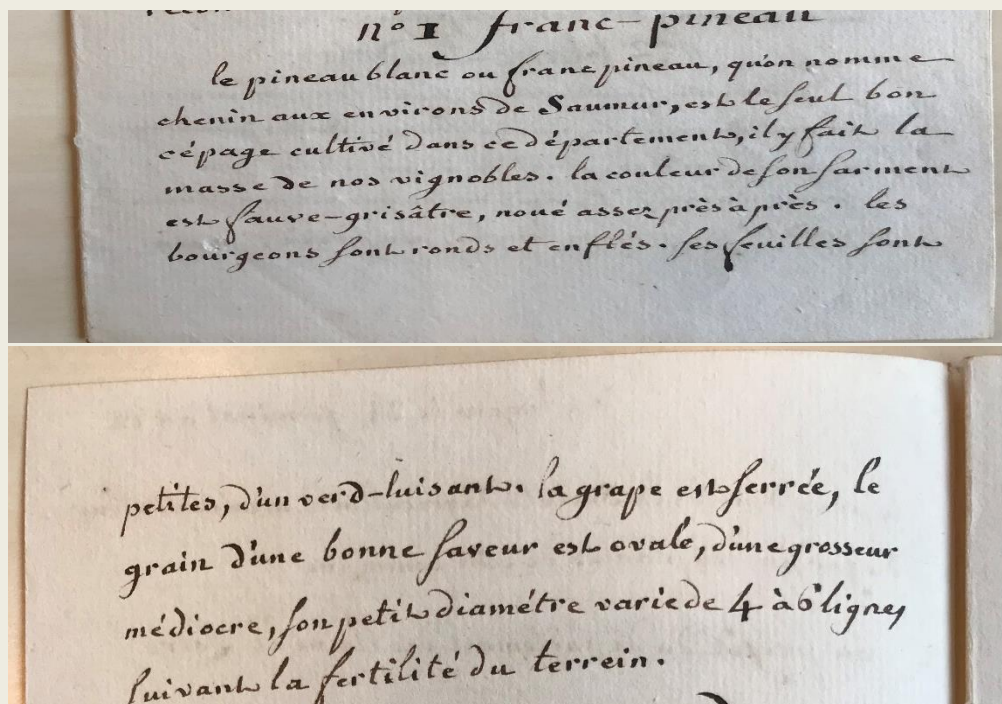 n° 1 franc-pineau
le pineau blanc ou franc pineau, qu'on nomme
chenin aux environs de Saumur, est le seul bon
cépage cultivé dans ce département, il y fait la
masse de nos vignobles. la couleur de son sarment
est fauve-grisâtre, noué assez près à près. les
bourgeons sont ronds et enflés. ses feuilles sont
petites, d'un verd-luisant. la grape est serrée, le
grain d'une bonne saveur est ovale, d'une grosseur
médiocre, son petit diamétre varie de 4 à 6 lignes
suivant la fertilité du terrein.